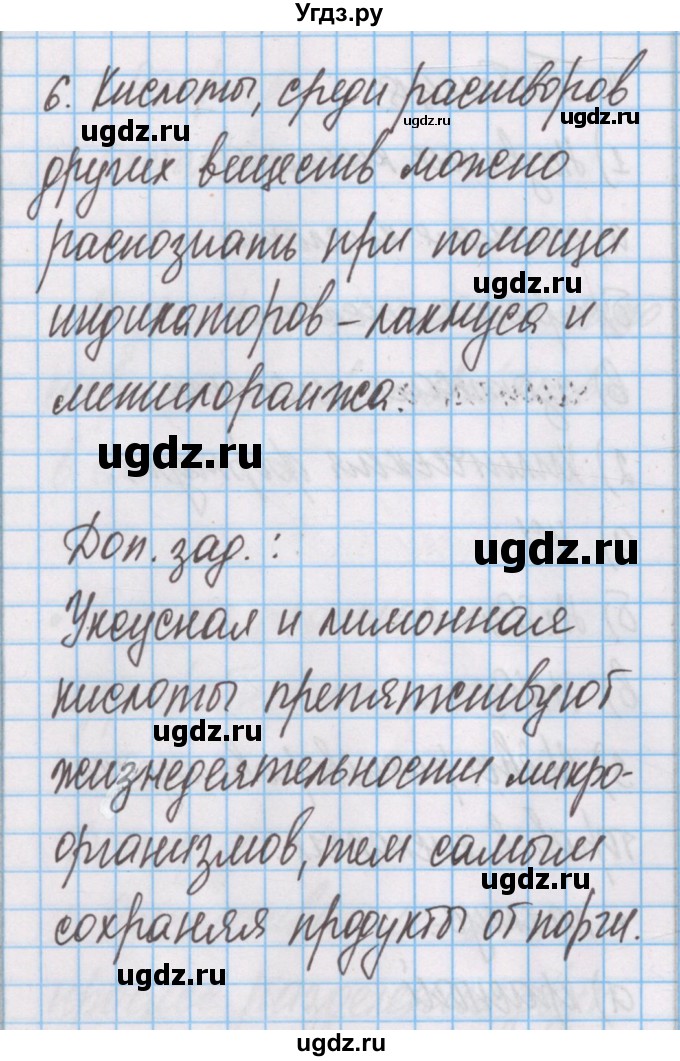 Угдз.ру
6. Кислоты, среди растворов
ugdz.ru
ugdz.ru
других веществ можно
распознать при помощи
ugdz.ru
индикаторов – лакмуса и
метилоранжа.
ugdz.ru
Доп. зад.:
ugdz.ru
Уксусная и лимонная
кислоты препятствуют
ugdz.ru
жизнедеятельности микро-
организмов, тем самым
ugdz.ru
сохраняя продукты от порги.
ugdz.ru
ugdz.ru